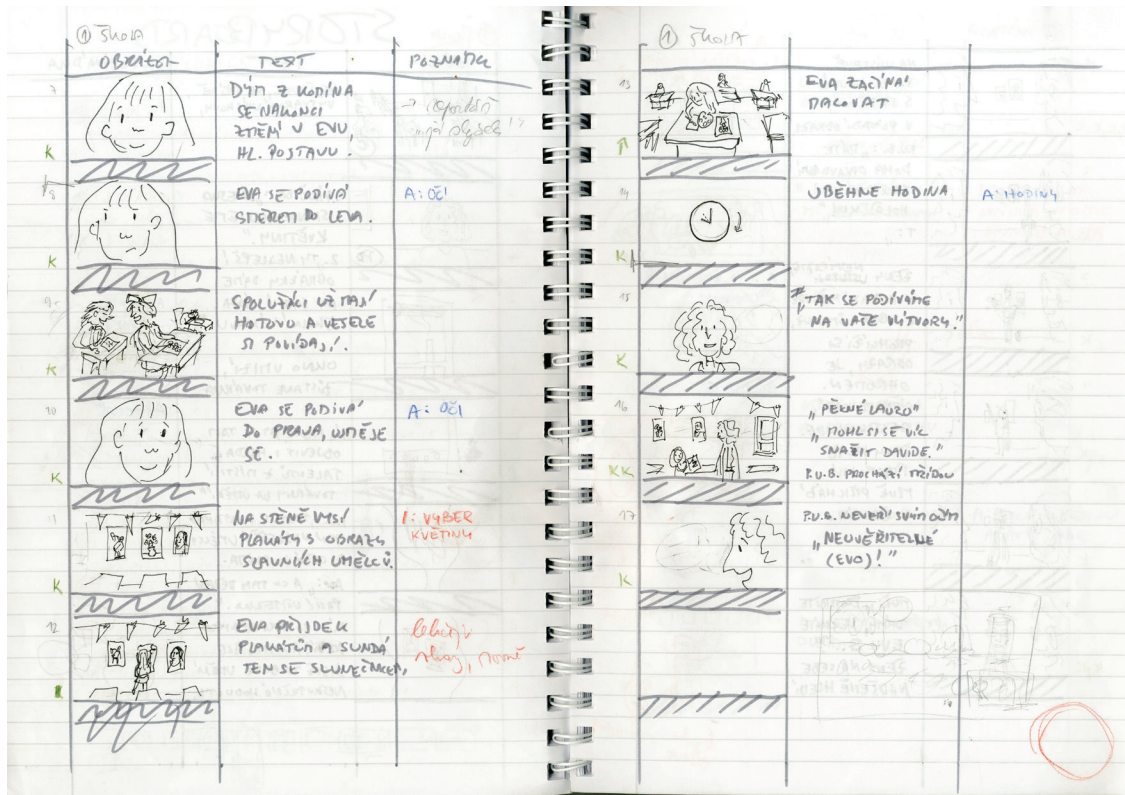 ① ŠKOLA
OBRÁZEK TEXT POZNÁMKA
7
DÝM Z KOMÍNA
SE NAKONCI
ZMĚNÍ V EVU,
HL. POSTAVU.
K
8
EVA SE PODÍVÁ
SMĚREM DO LEVA.
A: OČI
K
9
SPOLUŽÁCI UŽ MAJÍ
HOTOVO A VESELE
SI POVÍDAJÍ.
K
10
EVA SE PODÍVÁ
DO PRAVA, USMĚJE
SE.
A: OČI
K
11
NA STĚNĚ VISÍ
PLAKÁTY S OBRAZY
SLAVNÝCH UMĚLCŮ.
I: VÝBER
KVĚTINY
K
12
EVA PŘIJDE K
PLAKÁTŮM A SUNDÁ
TEN SE SLUNEČNICEMI,
① ŠKOLA
13
EVA ZAČÍNÁ
MALOVAT
14
UBĚHNE HODINA
A: HODINY
K
15
"TAK SE PODÍVÁME
NA VAŠE VÝTVORY."
K
16
„PĚKNÉ LAURO"
„MOHL SI SE VÍC
SNAŽIT DAVIDE."
P.U.B. PROCHÁZÍ TŘÍDOU
KK
17
P.U.B. NEVĚŘÍ SVÝM OČÍM
„NEUVĚŘITELNÉ
(EVO)!"
K